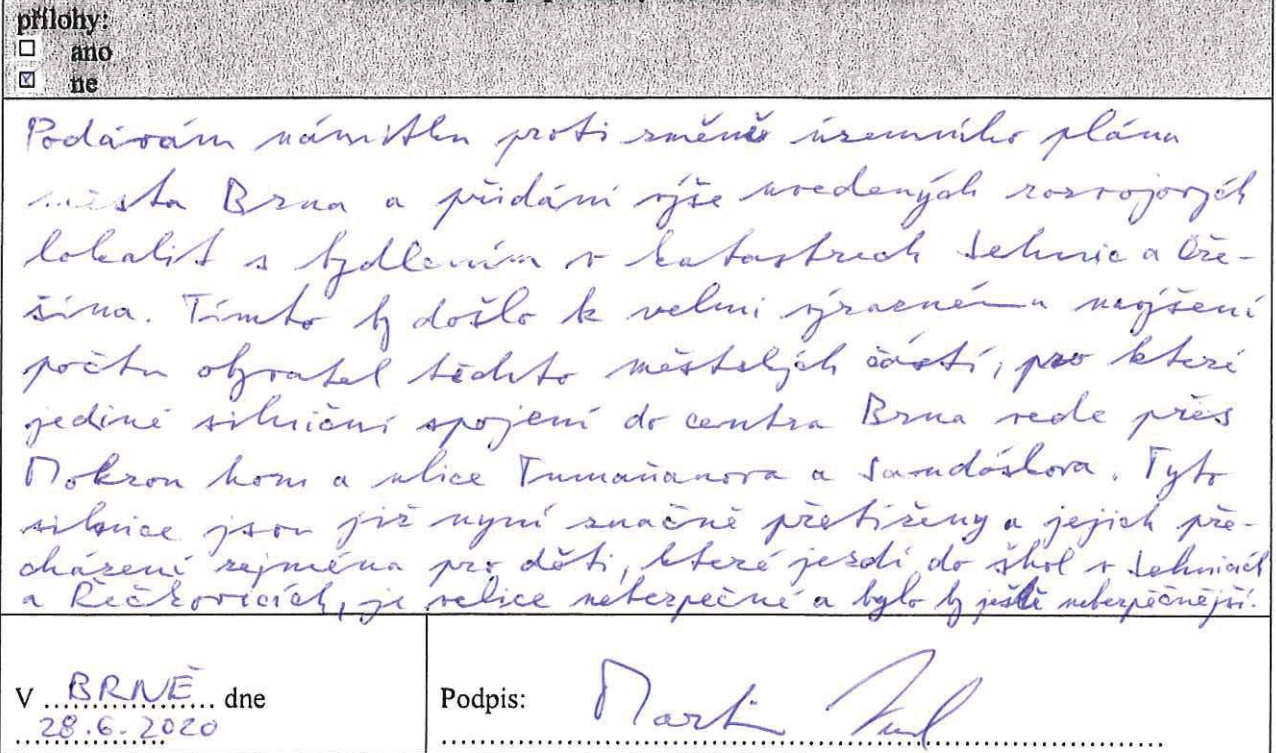 přílohy:
ano
ne
Podávám námitku proti změně územního plánu
města Brna a přidání výše uvedených rozvojových
lokalit s bydlením v katastrech Jehnic a Oře-
šína. Tímto by došlo k velmi výraznému navýšení
počtu obyvatel těchto městských částí, pro které
jediné silniční spojení do centra Brna vede přes
Mokrou horu a ulice Tumaňanova a Jandáskova. Tyto
silnice jsou již nyní značně přetíženy a jejich pře-
cházení zejména pro děti, které jezdí do škol v Jehnicích
a Řečkovicích, je velice nebezpečné a bylo by ještě nebezpečnější.
V BRNĚ dne
28.6.2020
Podpis:
Martin